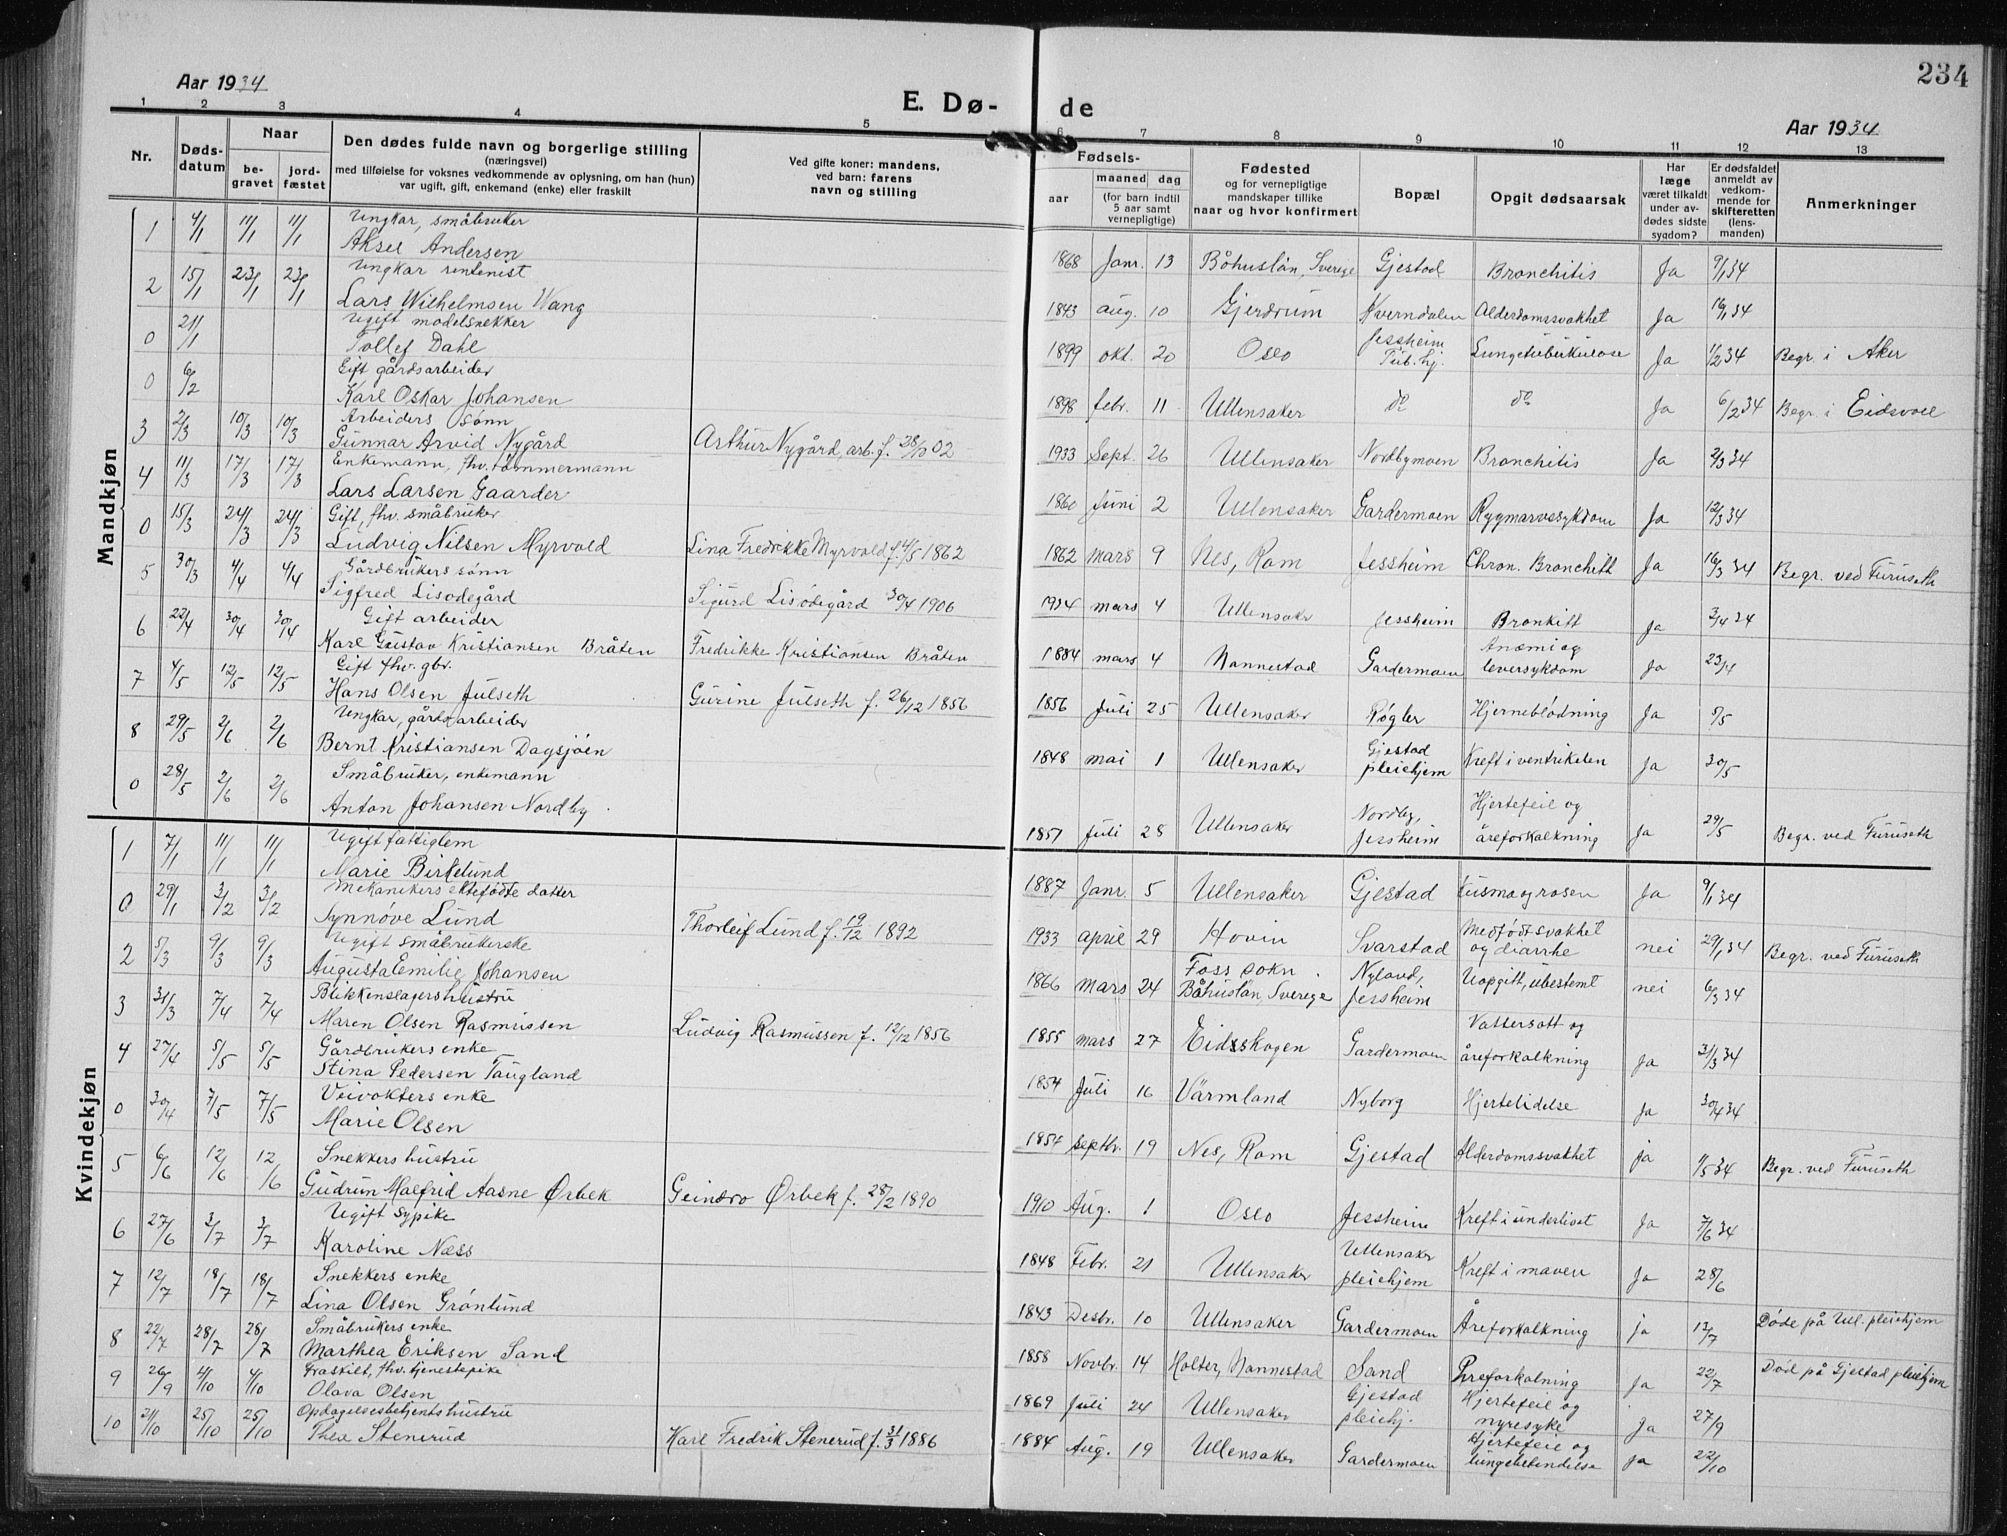 Aar 1934
E. Dø- de
Aar 1934
234
1 2 3 4 5 6 7 8 9 10 11 12 13
Nr.
Døds-
datum
Naar
be-
gravet
jord-
fæstet
Den dødes fulde navn og borgerlige stilling
(næringsvei)
med tilføielse for voksnes vedkommende av oplysning, om han (hun)
var ugift, gift, enkemand (enke) eller fraskilt
Ved gifte koner: mandens,
ved barn: farens
navn og stilling
Fødsels-
aar
maaned dag
(for barn indtil
5 aar samt
vernepligtige)
Fødested
og for vernepligtige
mandskaper tillike
naar og hvor konfirmert
Bopæl
Opgit dødsaarsak
Har
læge
været tilkaldt
under av-
dødes sidste
sygdom?
Er dødsfaldet
anmeldt av
vedkom-
mende for
skifteretten
(lens-
manden)
Anmerkninger
Mandkjøn
1 4/1 11/1 11/1 Ungkar, småbruker
Aksel Andersen 1868 Janr. 13 Båhuslän, Sverige Gjestad Bronchitis Ja 9/1 34
2 15/1 23/1 23/1 Ungkar rentenist
Lars Wilhelmsen Wang 1843 aug. 10 Gjerdrum Kverndalen Alderdomssvakhet Ja 16/1 34
0 21/1 Ugift modelsnekker
Tollef Dahl 1899 okt. 20 Oslo Jessheim Tub.hj. Lungetuberkulose Ja 1/2 34 Begr. i Aker
0 6/2 Gift gårdsarbeider
Karl Oskar Johansen 1898 febr. 11 Ullensaker do do Ja 6/2 34 Begr. i Eidsvoll
3 2/3 10/3 10/3 Arbeiders sønn
Gunnar Arvid Nygård Arthur Nygård, arb. f. 28/10 02 1933 Sept. 26 Ullensaker Nordbymoen Bronchitis Ja 2/3 34
4 11/3 17/3 17/3 Enkemann, fhv. tømmermann
Lars Larsen Gaarder 1860 Juni 2 Ullensaker Gardermoen Rygmarvssykdom Ja 12/3 34
0 15/3 24/3 24/3 Gift, fhv. småbruker
Ludvig Nilsen Myrvold Lina Fredrikke Myrvold f. 4/5 1862 1862 mars 9 Nes, Rom Jessheim Chron. Bronchitt Ja 16/3 34 Begr. ved Furuseth
5 30/3 4/4 4/4 Gårdbrukers sønn
Sigfred Lisødegård Sigurd Lisødegård 30/4 1906 1934 mars 4 Ullensakr Jessheim Bronkitt Ja 3/4 34
6 22/4 30/4 30/4 Gift arbeider
Karl Gustav Kristiansen Bråten Fredrikke Kristiansen Bråten 1884 mars 4 Nannestad Gardermoen Anæmi og leversykdom Ja 23/4
7 4/5 12/5 12/5 Gift fhv. gbr.
Hans Olsen Julseth Gurine Julseth f. 26/12 1856 1856 Juli 25 Ullensaker Røgler Hjerneblødning Ja 5/5
8 29/5 2/6 2/6 Ungkar, gårdsarbeider
Bernt Kristiansen Dagsjøen 1848 mai 1 Ullensaker Gjestad pleiehjem Kreft i ventrikelen Ja 30/5
0 28/5 2/6 2/6 Småbruker, enkemann
Anton Johansen Nordby 1851 Juli 28 Ullensaker Nordby, Jessheim Hjertefeil og åreforkalkning Ja 29/5 Begr. ved Furuseth
Kvindekjøn
1 7/1 11/1 11/1 Ugift fattiglem
Marie Birkelund 1887 Janr. 5 Ullensaker Gjestad og rosen Ja 9/1 34
0 29/1 3/2 3/2 Mekanikers ektefødte datter
Synnøve Lund Thorleif Lund f. 19/12 1892 1933 april 29 Hovin Svarstad Medfødt svakhet og diarrhe nei 29/1 34 Begr. ved Furuseth
2 5/3 9/3 9/3 Ugift småbrukerske
Augusta Emilie Johansen 1866 mars 24 Foss sokn Båhuslän, Sverige Nyland, Jessheim Uopgitt, ubestemt nei 6/3 34
3 31/3 7/4 7/4 Blikkenslagers hustru
Maren Olsen Rasmussen Ludvig Rasmussen f. 12/12 1856 1855 mars 27 Eidsskogen Gardermoen Vattersott og åreforkalkning Ja 31/3 34
4 27/4 5/5 5/5 Gårdbrukers enke
Stina Pedersen Taugland 1854 Juli 16 Värmland Nyborg Hjertelidelse Ja 30/4 34
0 30/4 7/5 7/5 Veivokters enke
Marie Olsen 1854 septbr. 19 Nes, Rom Gjestad Alderdomssvakhet ja 1/5 34 Begr. ved Furuseth
5 6/6 12/6 12/6 Snekkers hustru
Gudrun Malfred Aasne Ørbek Ørbek f. 28/2 1890 1910 Aug. 1 Oslo Jessheim Kreft i underlivet Ja 7/6 34
6 27/6 3/7 3/7 Ugift sypike
Karoline Næss 1848 Febr. 21 Ullensaker Ullensaker pleiehjem Kreft i maven Ja 28/6
7 12/7 18/7 18/7 Snekkers enke
Lina Olsen Grønlund 1843 Desbr. 10 Ullensaker Gardermoen Åreforkalkning ja 13/7 Døde på Ull. pleiehjem
8 22/7 28/7 28/7 Småbrukers enke
Marthea Eriksen Sand 1858 Novbr. 14 Holter, Nannestad Sand Åreforkalning Ja 22/7 Død på Gjestad pleiehjem
9 26/9 4/10 4/10 Fraskilt, fhv. tjenestepike
Olava Olsen 1869 Juli 24 Ullensaker Gjestad pleiehj. Hjertefeil og nyresyke Ja 27/9
10 21/10 25/10 25/10 Opdagelsesbetjents hustru
Thea Stenerud Karl Fredrik Stenerud f. 31/3 1886 1884 Aug. 19 Ullensaker Gardermoen Hjertefeil og lungebetendelse Ja 22/10